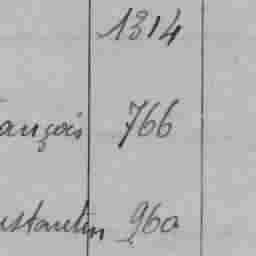 1314
ançois 766
nstantin 960